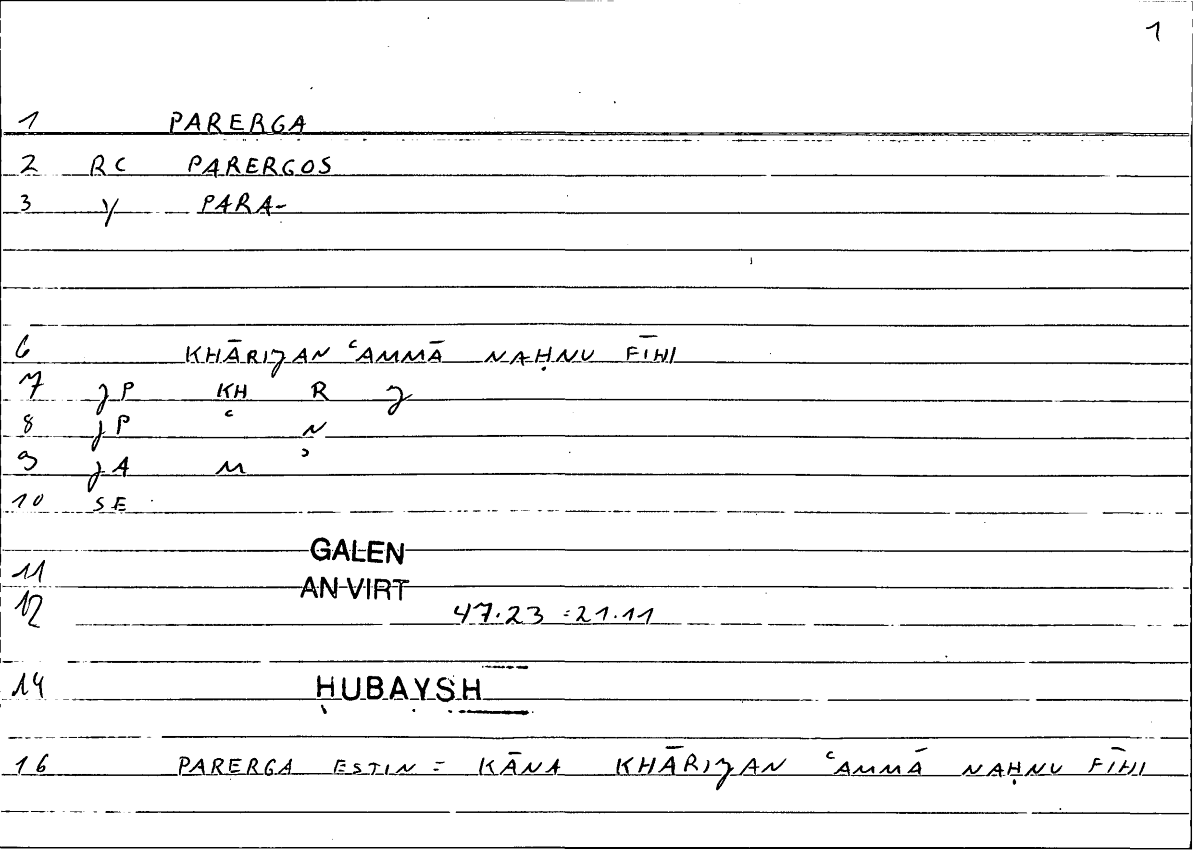 1
1 PARERGA
2 RC PARERGOS
3 Y PARA-
6 KHĀRIJAN ʿAMMĀ NAḤNU FĪHI
7 JP KH R J
8 JP ʿ N
9 JA M ʾ
10 SE
11 GALEN
12 AN VIRT
47.23 = 21.11
14 ḤUBAYSH
16 PARERGA ESTIN = KĀNA KHĀRIJAN ʿAMMĀ NAḤNU FĪHI